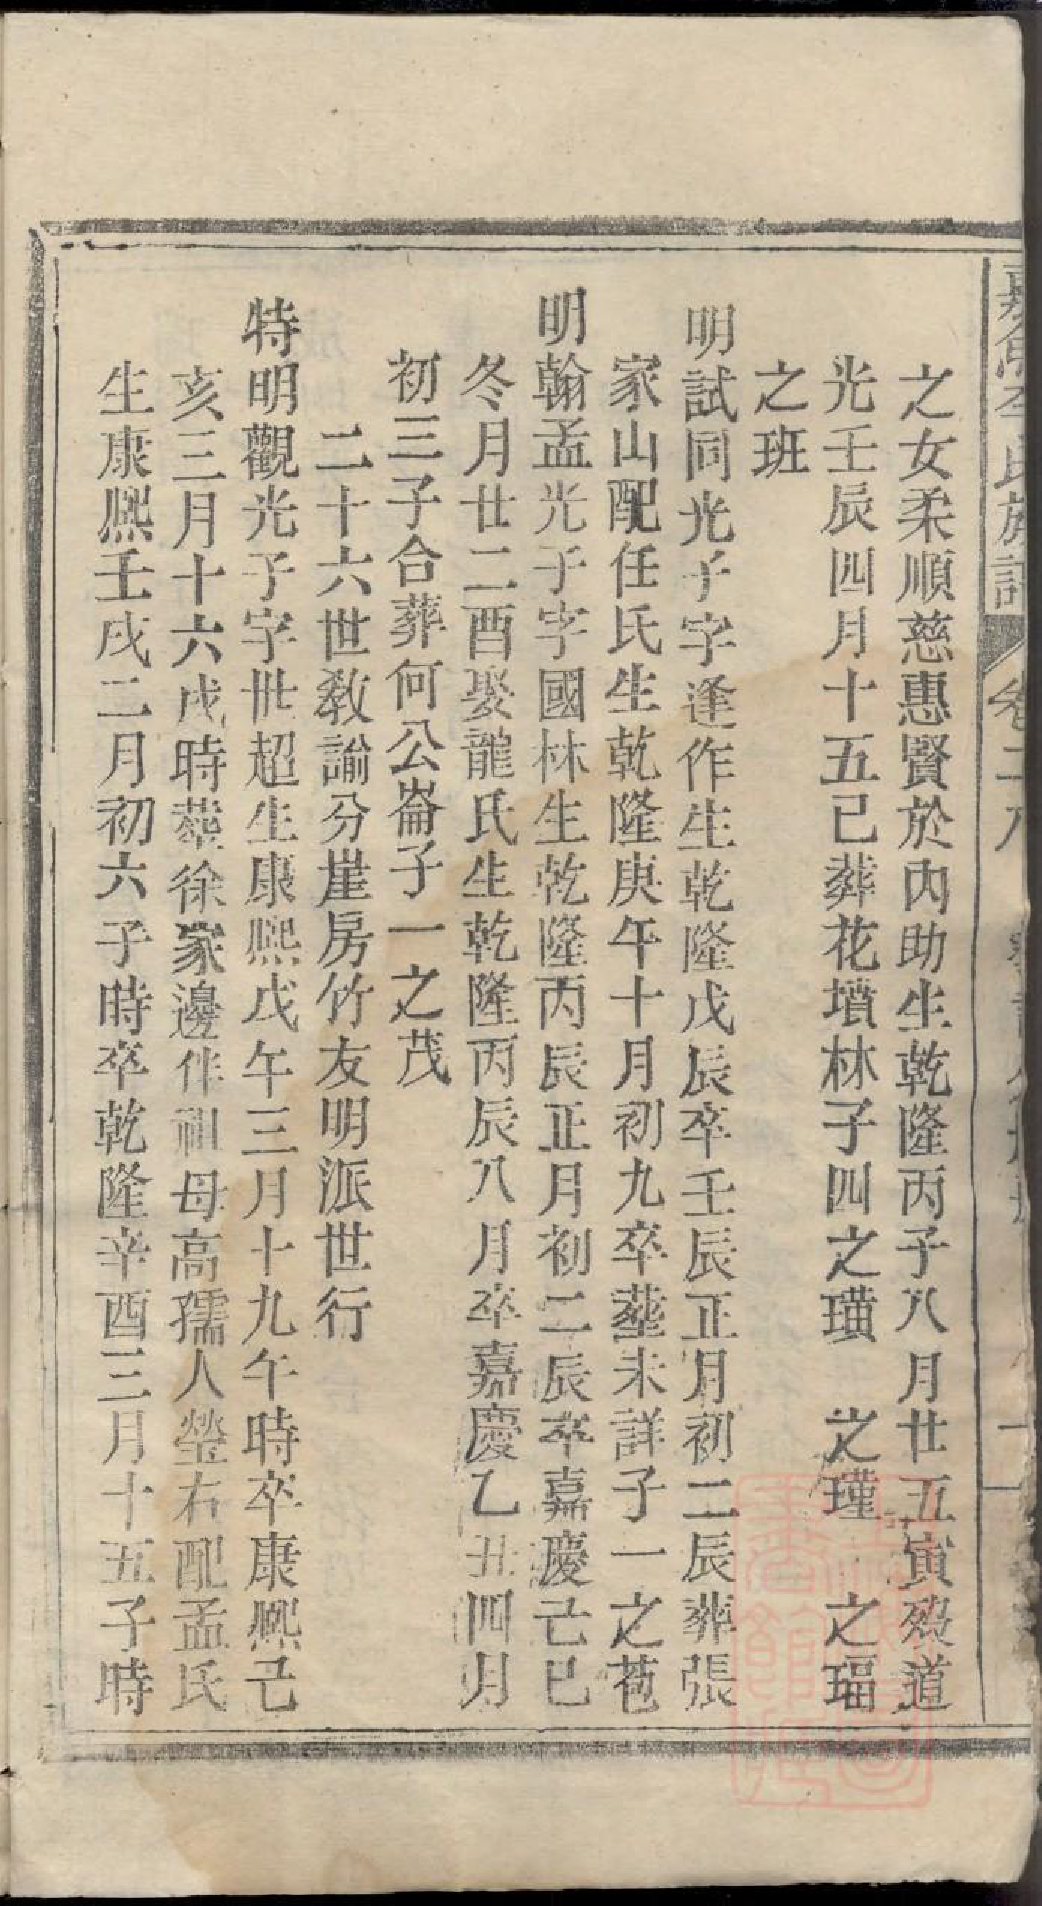 之女柔順慈惠賢於內助生乾隆丙子八月廿五寅殁道
光壬辰四月十五巳葬花墳林子四之璜　之瑾　之瑙
之班
明試同光子字逢作生乾隆戊辰卒壬辰正月初二辰葬張
家山配任氏生乾隆庚午十月初九卒塟未詳子一之苞
明翰孟光子字國林生乾隆丙辰正月初二辰卒嘉慶己巳
冬月廿二酉娶龍氏生乾隆丙辰八月卒嘉慶乙丑四月
初三子合葬何公崙子一之茂
二十六世敎諭分崖房竹友明派世行
特明觀光子字世超生康熙戊午三月十九午時卒康熙己
亥三月十六戌時塟徐家邊伴祖母高孺人塋右配孟氏
生康熙壬戌二月初六子時卒乾隆辛酉三月十五子時